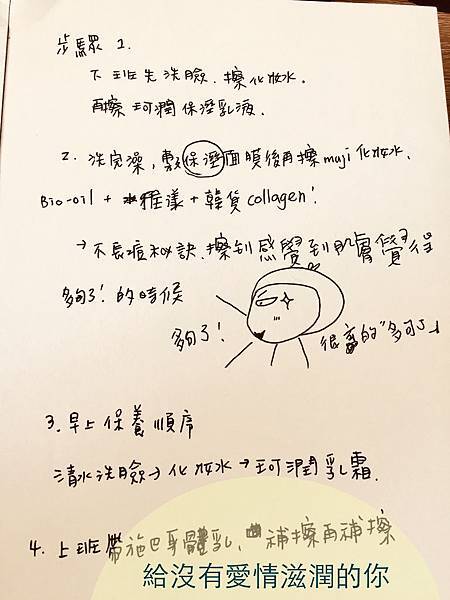 步驟 1.
下班先洗臉.擦化妝水.
再擦珂潤保溼乳液.
2. 洗完澡,敷保溼面膜後再擦muji化妝水.
Bio-oil + 雅漾 + 韓貨collagen!
→不長痘秘訣.擦到感覺到肌膚覺得
夠了!的時候
夠了!
很ㄍㄧㄥ的"夠了"
3. 早上保養順序
清水洗臉→化妝水→珂潤乳霜.
4. 上班帶施巴身體乳,補擦再補擦
給沒有愛情滋潤的你